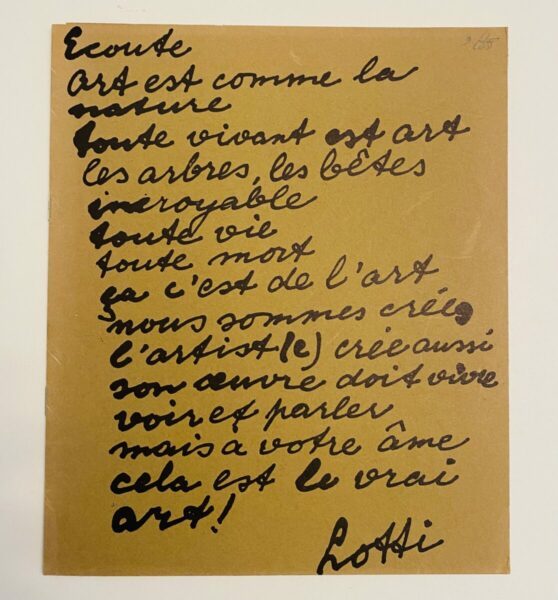 Ecoute
art est comme la
nature
toute vivant est art
les arbres, les bêtes
incroyable
toute vie
toute mort
ça c'est de l'art
nous sommes crées
l'artist(e) crée aussi
son œuvre doit vivre
voir et parler
mais à votre âme
cela est le vrai
art!
Lotti